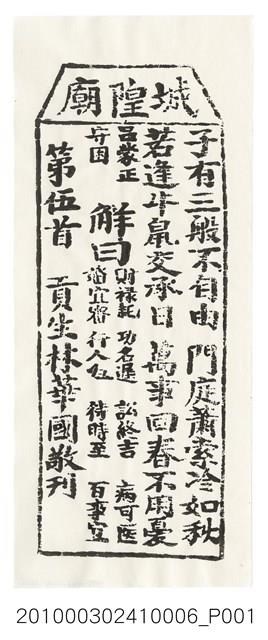 城隍廟
子有三般不自由 門庭蕭索冷如秋
若逢牛鼠交承日 萬事回春不用憂
呂蒙正守困
解曰
財祿耗 功名遲 訟終吉 病可医
婚宜審 行人 待時至 百事宜
第伍首 貢生林華國敬刊
201000302410006_P001